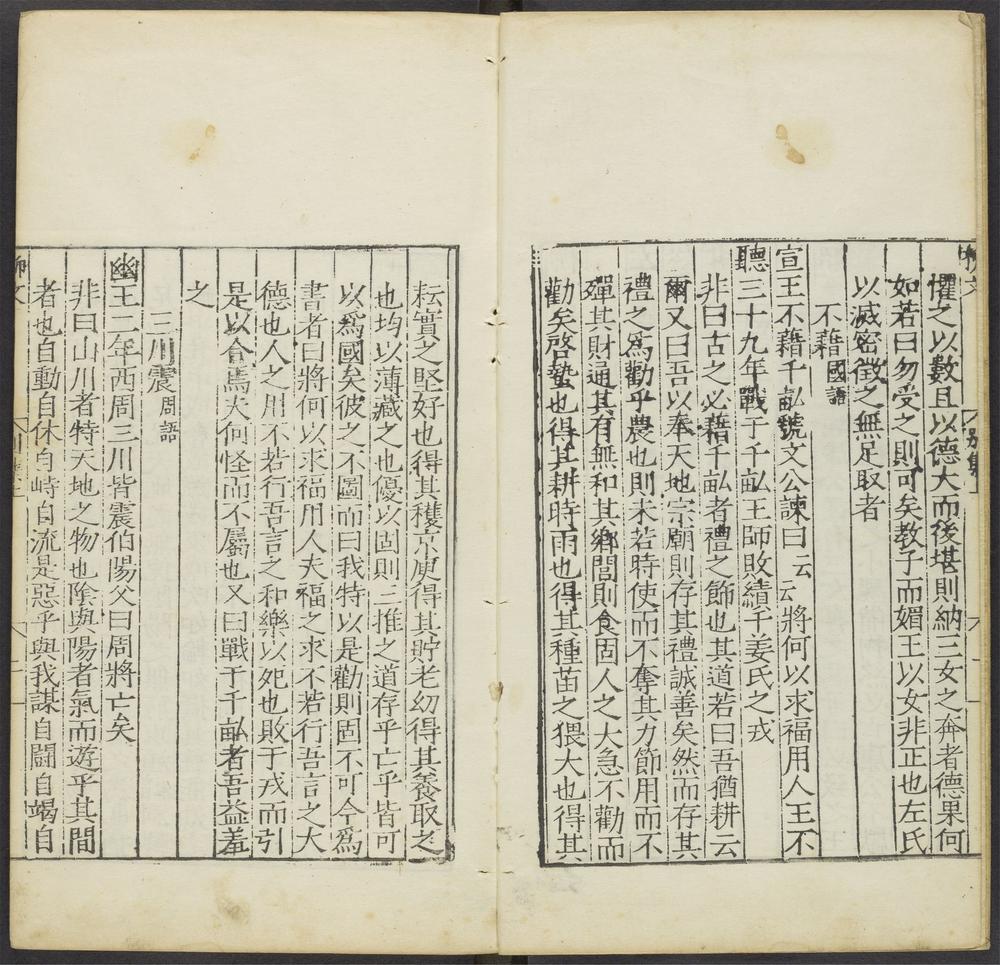 懼之以數且以德大而後堪則納三女之奔者德果何
如若曰勿受之則可矣教子而媚王以女非正也左氏
以滅密徵之無足取者
不藉國語
宣王不藉千畝虢文公諫曰云云將何以求福用人王不
聽三十九年戰于千畝王師敗績于姜氏之戎
非曰古之必藉千畝者禮之飾也其道若曰吾猶耕云
爾又曰吾以奉天地宗廟則存其禮誠善矣然而存其
禮之爲勸乎農也則未若時使而不奪其力節用而不
殫其財通其有無和其鄉閭則食固人之大急不勸而
勸矣啓蟄也得其耕時雨也得其種苗之猥大也得其
耘實之堅好也得其穫京庾得其貯老幼得其養取之
也均以薄藏之也優以固則三推之道存乎亡乎皆可
以爲國矣彼之不圖而曰我特以是勸則固不可今爲
書者曰將何以求福用人夫福之求不若行吾言之大
德也人之用不若行吾言之和樂以死也敗于戎而引
是以合焉夫何怪而不屬也又曰戰于千畝者吾益羞
之
三川震周語
幽王二年西周三川皆震伯陽父曰周將亡矣
非曰山川者特天地之物也陰與陽者氣而遊乎其間
者也自動自休自峙自流是惡乎與我謀自鬬自竭自
柳文